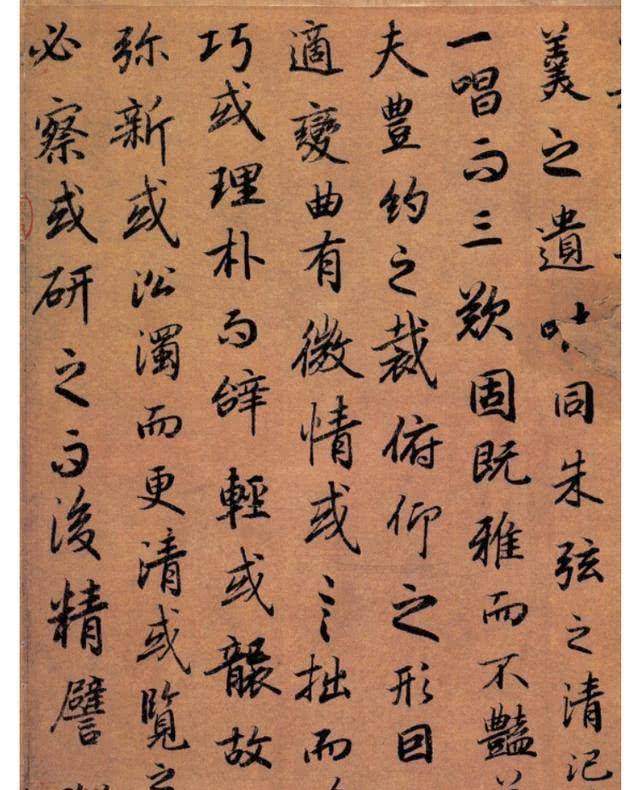 羹之遺味同朱弦之清氾
一唱而三歎固既雅而不豔
夫豐約之裁俯仰之形因
適變曲有微情或言拙而
巧或理朴而辭輕或襲故
弥新或沿濁而更清或覽之
必察或研之而後精譬